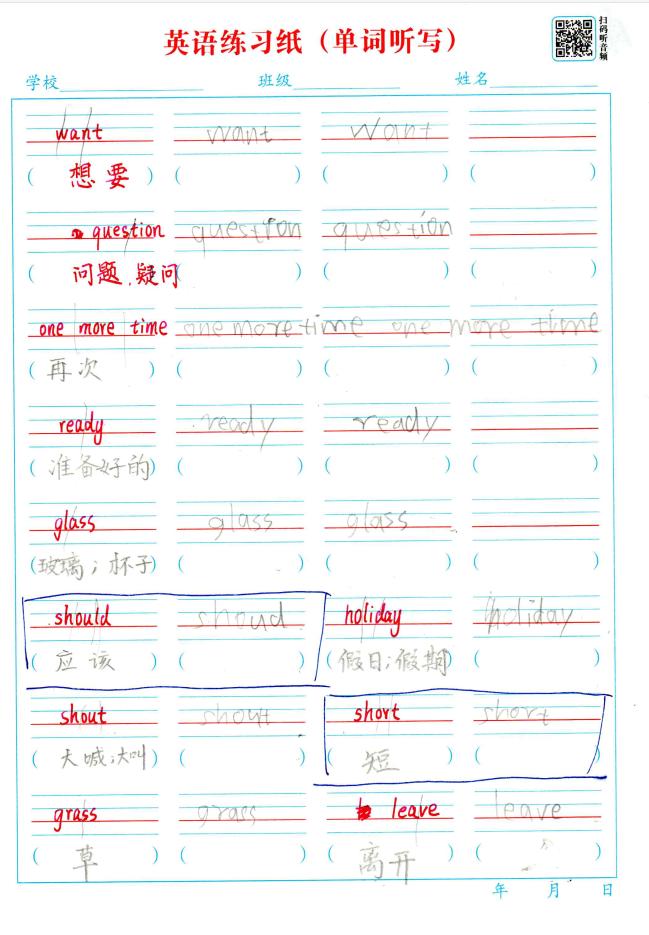 英语练习纸（单词听写）
扫码听音频
学校 班级 姓名
want want want
( 想要 ) ( ) ( ) ( )
question question question
( 问题、疑问 ( ) ( ) ( )
one more time one more time one more time
( 再次 ) ( ) ( ) ( )
ready ready ready
( 准备好的 ) ( ) ( ) ( )
glass glass glass
( 玻璃；杯子 ) ( ) ( ) ( )
should shoud holiday holiday
( 应该 ) ( ) ( 假日；假期 ) ( )
shout shout short short
( 大喊；大叫 ) ( ) ( 短 ) ( )
grass grass leave leave
( 草 ) ( ) ( 离开 ) ( )
年 月 日